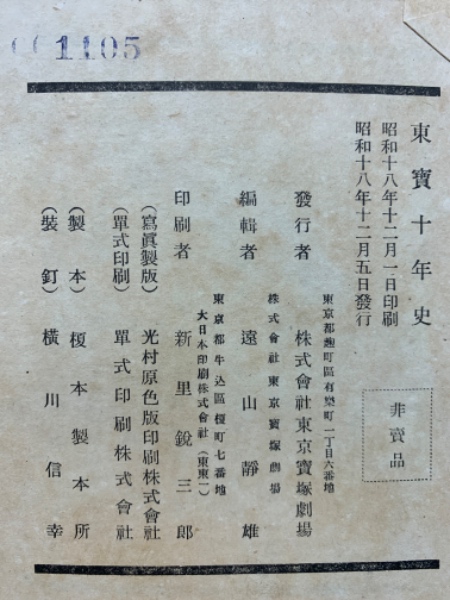 1105
東寶十年史
昭和十八年十二月一日印刷
昭和十八年十二月五日發行
非賣品
東京都麴町區有樂町一丁目六番地
發行者 株式會社東京寶塚劇場
株式會社東京寶塚劇場
編輯者 遠山靜雄
東京都牛込區榎町七番地
大日本印刷株式會社(東東一)
印刷者 新里銳三郎
(寫眞製版) 光村原色版印刷株式會社
(單式印刷) 單式印刷株式會社
(製本) 榎本製本所
(裝釘) 橫川信幸